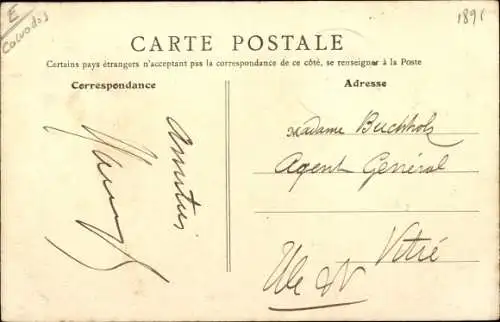 E
Calvados
1891
CARTE POSTALE
Certains pays étrangers n'acceptant pas la correspondance de ce côté, se renseigner à la Poste
Correspondance
Amitiés
Adresse
Madame Buchholz
Agent Général
Vitré
Ille et V